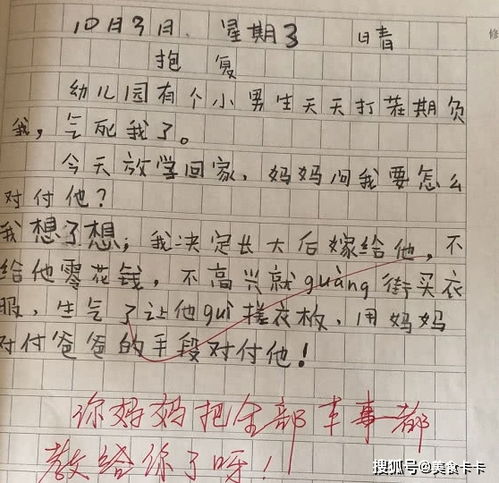 10月9日. 星期3 日晴
抱 复
幼儿园有个小男生天天打茬期负
我，气死我了。
今天放学回家，妈妈问我要怎么
对付他？
我想了想，我决定长大后嫁给他，不
给他零花钱，不高兴就guàng街买衣
服，生气了让他guì搓衣板，用妈妈
对付爸爸的手段对付他！
你妈妈把全部本事都
教给你了呀！
搜狐号@美食卡卡
修